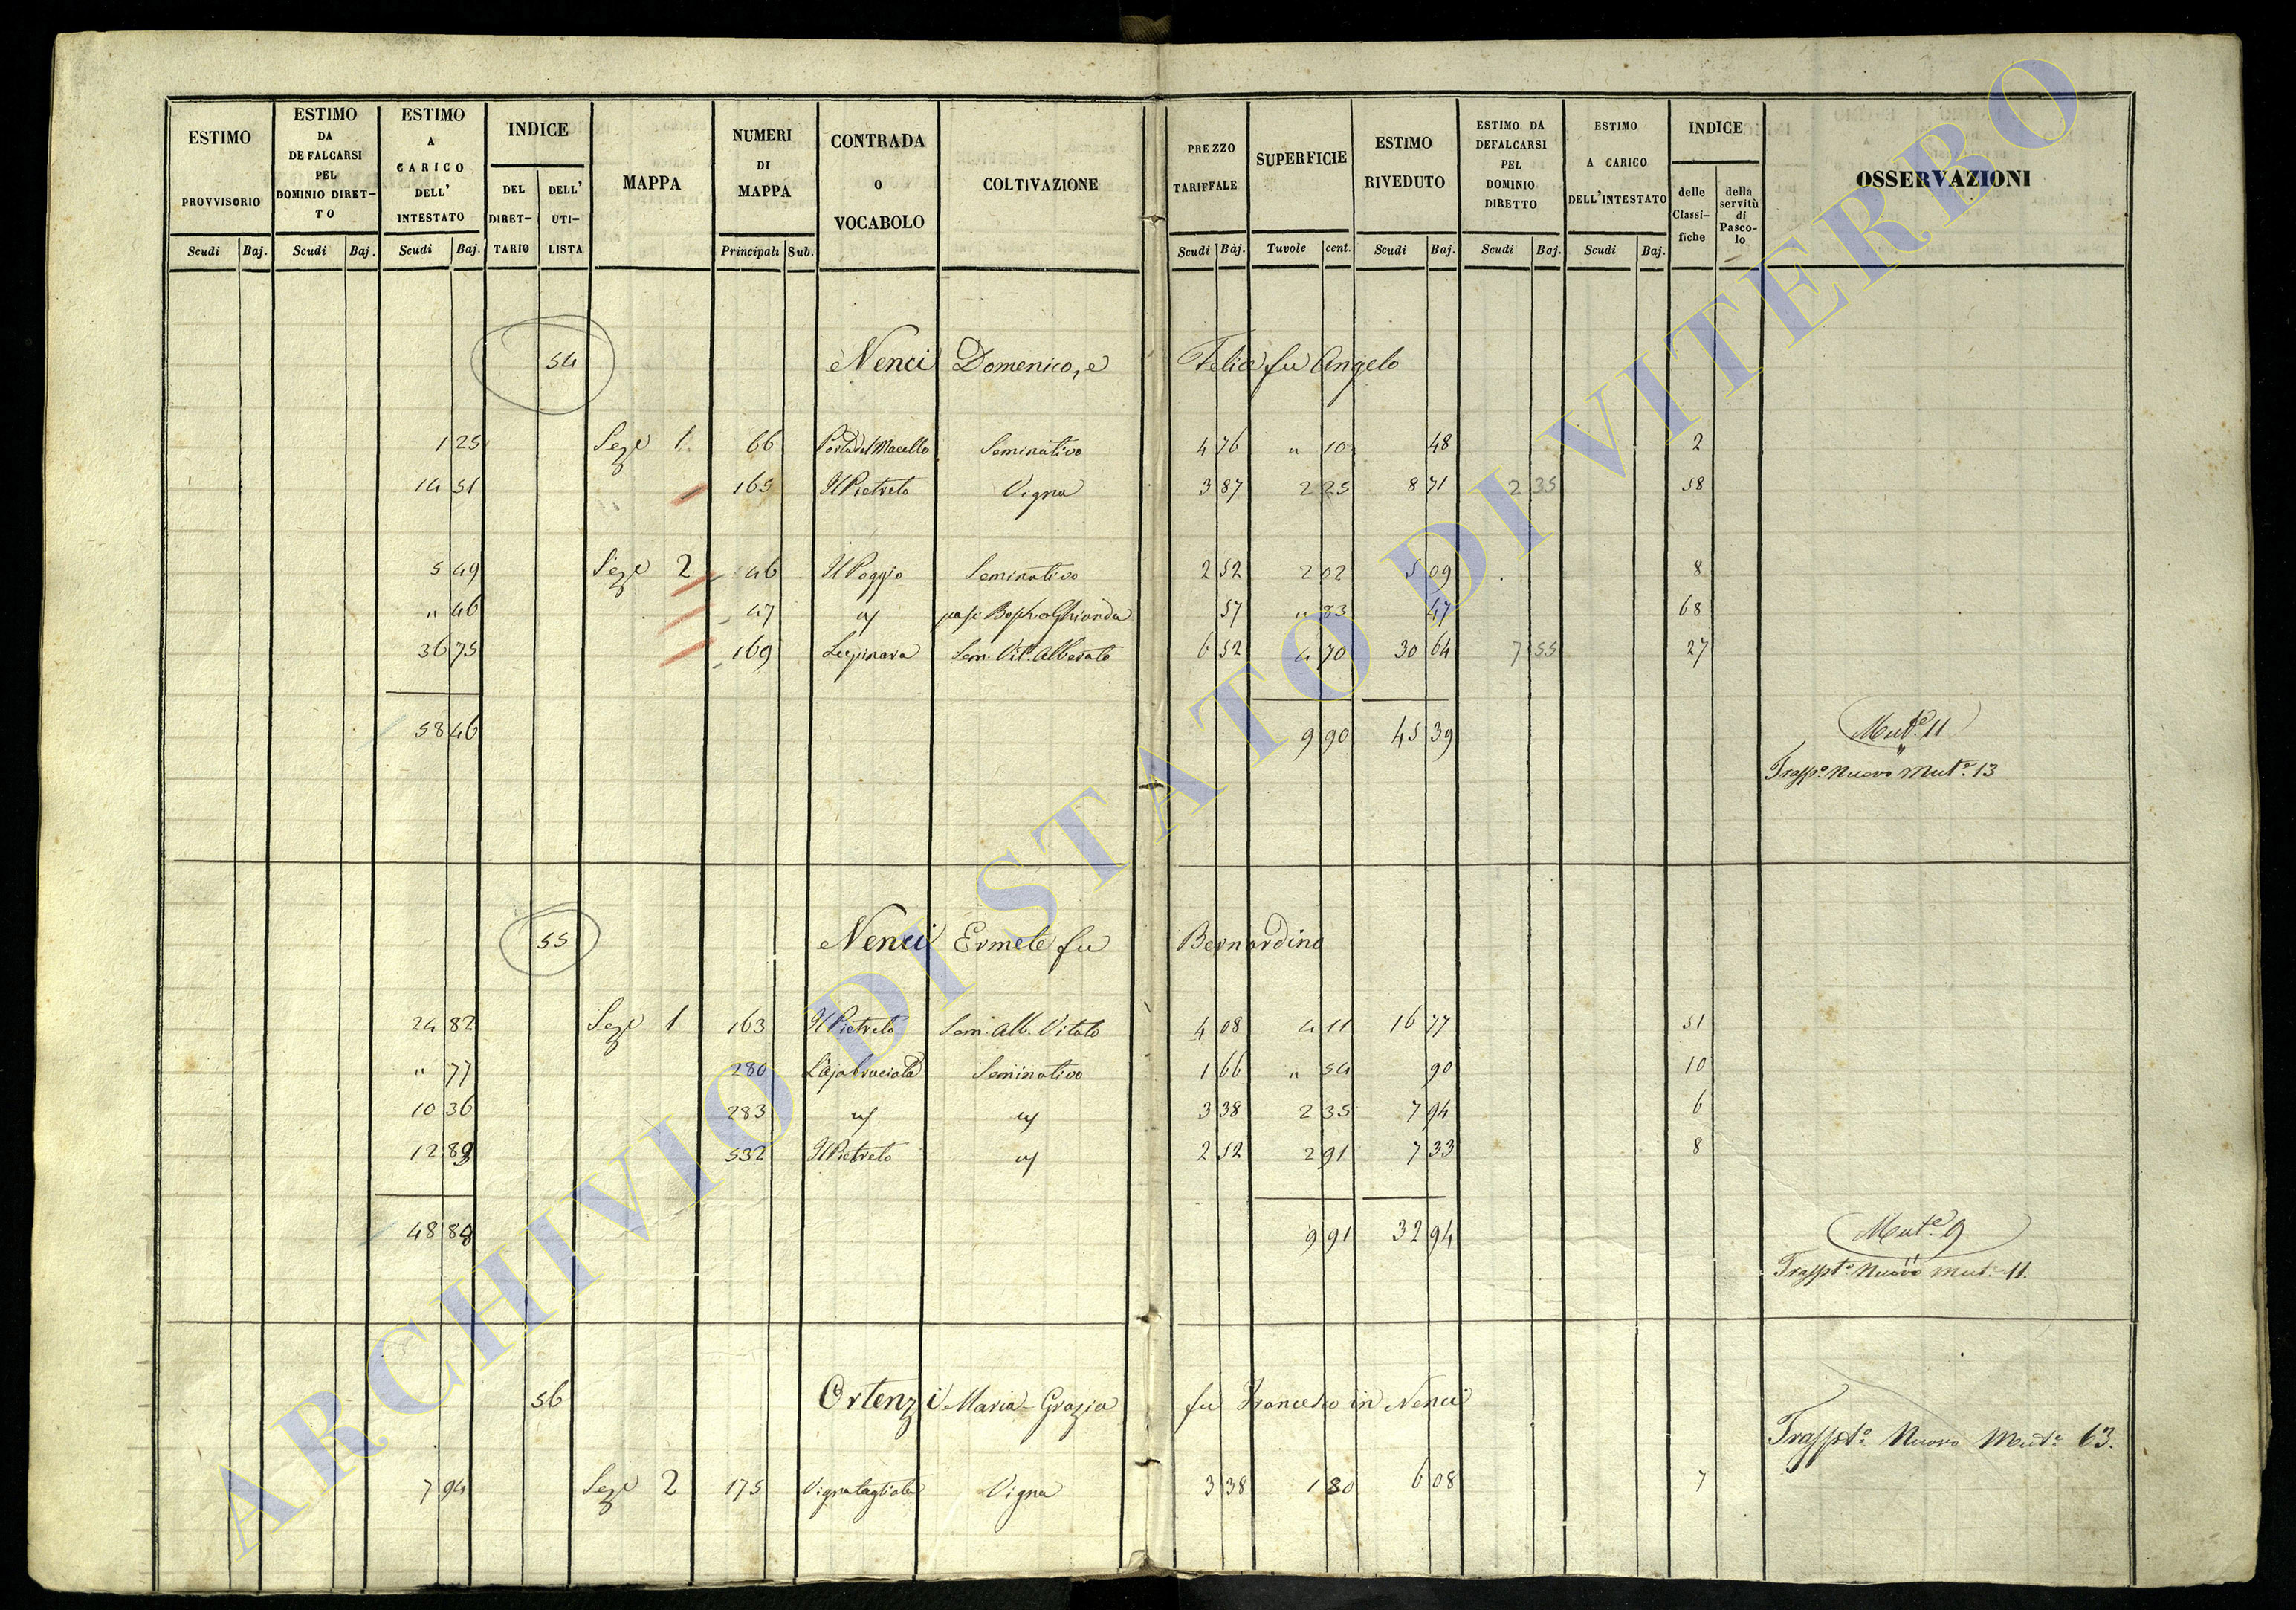 ESTIMO PROVVISORIO Scudi Baj.
ESTIMO DA DEFALCARSI PEL DOMINIO DIRET-TO Scudi Baj.
ESTIMO A CARICO DELL' INTESTATO Scudi Baj.
INDICE DEL DIRET-TARIO DELL' UTI-LISTA
MAPPA
NUMERI DI MAPPA Principali Sub.
CONTRADA O VOCABOLO
COLTIVAZIONE
PREZZO TARIFFALE Scudi Baj.
SUPERFICIE Tavole cent.
ESTIMO RIVEDUTO Scudi Baj.
ESTIMO DA DEFALCARSI PEL DOMINIO DIRETTO Scudi Baj.
ESTIMO A CARICO DELL'INTESTATO Scudi Baj.
INDICE delle Classi-fiche della servitù di Pasco-lo
OSSERVAZIONI
54 Nenci Domenico, e Felice fu Angelo
1 25 Seze 1 66 Porta del Macello Seminativo 4 76 " 10 48 2
14 51 165 Il Pietreto Vigna 3 87 2 25 8 71 2 35 58
5 49 Seze 2 46 Il Poggio Seminativo 2 52 2 02 5 09 8
" 46 47 57 " 83 47 68
36 75 169 Sem. Vit. Alberato 6 52 4 70 30 64 7 55 27
58 46 9 90 45 39 Mut.e 11
"
Trasp.o Nuovo Mut.e 13
55 Nenci Ermete fu Bernardino
24 82 Seze 1 163 Il Pietreto Sem. Alb. Vitato 4 08 4 11 16 77 51
" 77 280 Seminativo 1 66 " 54 90 10
10 36 283 3 38 2 35 7 94 6
12 89 532 Il Pietreto 2 52 2 91 7 33 8
48 84 9 91 32 94 Mut.e 9
"
Traspt.o Nuovo Mut. 11.
56 Ortenzi Maria-Grazia fu Francesco in Nenci
Traspt.o Nuovo Mut.e 63.
7 94 Seze 2 175 Vigna tagliata Vigna 3 38 1 80 6 08 7
ARCHIVIO DI STATO DI VITERBO